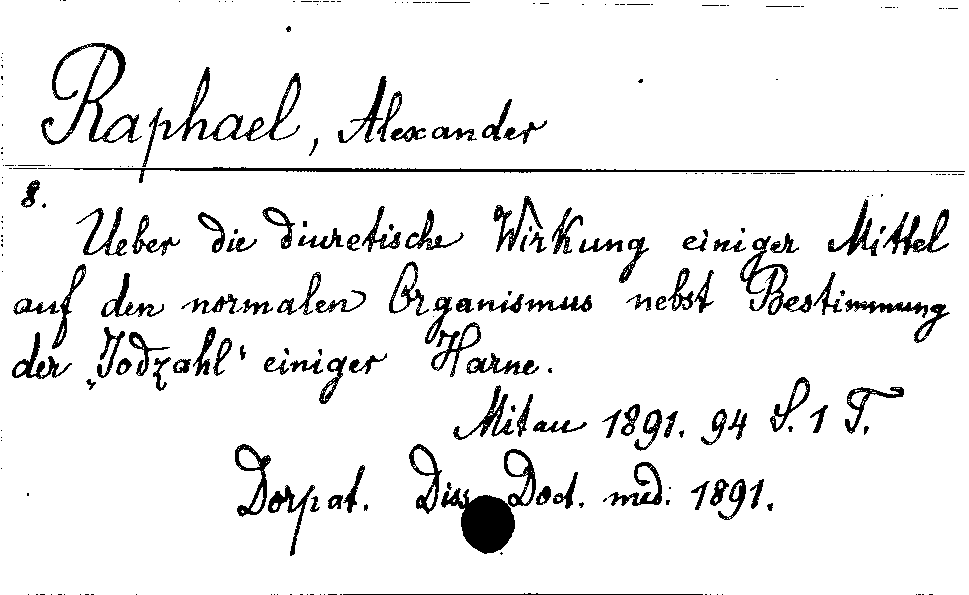 Raphael, Alexander
8.
Ueber die diuretische Wirkung einiger Mittel
auf den normalen Organismus nebst Bestimmung
der „Jodzahl‟ einiger Harne.
Mitau 1891. 94 S. 1 T.
Dorpat. Diss. Doct. med. 1891.